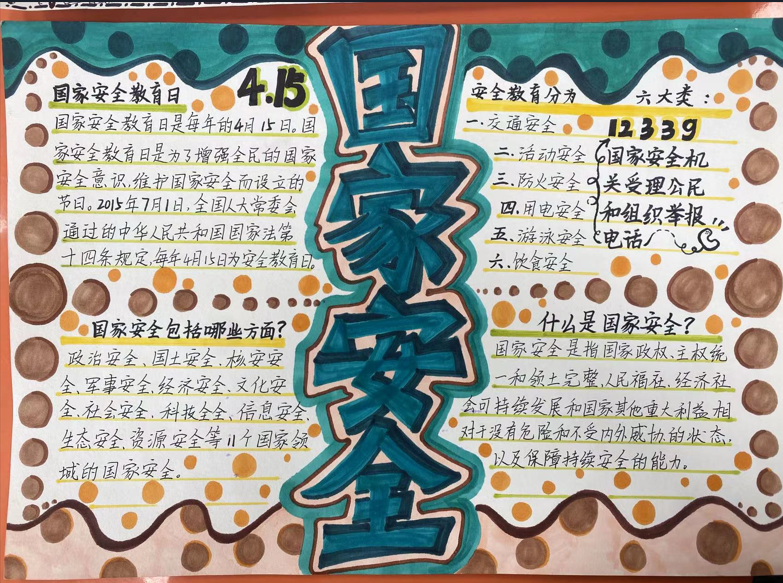 国家安全教育日
4.15
国家安全教育日是每年的4月15日。国
家安全教育日是为了增强全民的国家
安全意识，维护国家安全而设立的
节日。2015年7月1日，全国人大常委会
通过的中华人民共和国国家法第
十四条规定，每年4月15日为安全教育日。
国家安全包括哪些方面？
政治安全、国土安全、核安安
全、军事安全、经济安全、文化安
全、社会安全、科技全全、信息安全、
生态安全、资源安全等11个国家领
域的国家安全。
国家安全
安全教育分为 六大类：
一、交通安全
二、活动安全
三、防火安全
四、用电安全
五、游泳安全
六、饮食安全
12339
国家安全机
关受理公民
和组织举报
电话
什么是国家安全？
国家安全是指国家政权、主权统
一和领土完整、人民福社、经济社
会可持续发展和国家其他重大利益相
对于没有危险和不受内外威协的状态，
以及保障持续安全的能力。